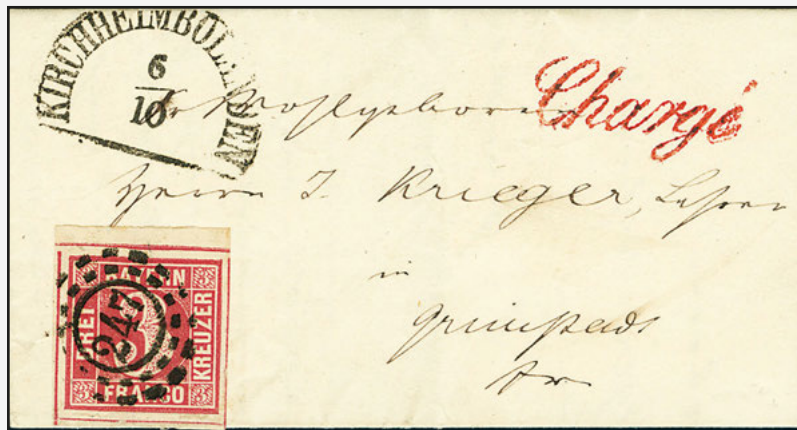 KIRCHHEIMBOLANDEN
6
10
Chargé
Wohlgeboren
Herrn J. Krieger, Lehrer
in
Grünstadt
BAYERN
DREI
3
KREUZER
FRANCO
243